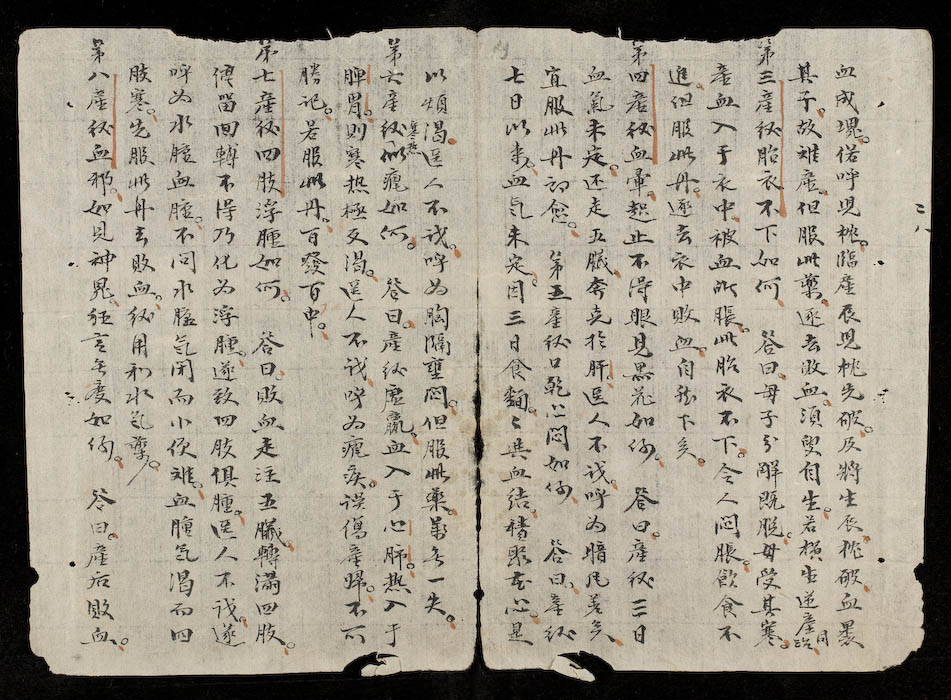 血成塊。俗呼児枕。臨産辰児枕先破。及將生辰枕破血裹
其子。故难産。但服此藥。逐去敗血。須臾自生。若横生逆産同治
第三産後胎衣不下如何　答曰。母子分解既脫。母受其寒。
産血入于衣中。被血所脹。此胎衣不下。令人悶脹。飲食不
進。但服此丹。逐去衣中敗血。自然下矣。
第四産後血暈。起止不得。眼見黒花如何　答曰。産後三日
血氣未定。还走五臟。奔充於肝。医人不识。呼为暗風。差矣
宜服此丹即愈。　第五産後口乾心悶如何　答曰。産後
七日以来。血气未定。因三日食麵。〻與血结。積聚在心。是
以煩渴。医人不识。呼为胸隔壅悶。但服此藥。萬无一失。
第六産後寒热似瘧如何。　答曰。産後虚羸。血入于心肺。热入于
脾胃。则寒热極及渴。医人不识。呼为瘧疾。误傷産婦。不可
勝记。若服此丹。百發百中。
第七産後四肢浮腫如何。　答曰。敗血走注五臟。轉滿四肢。
停留回轉不得。乃化为浮腫。遂致四肢俱腫。医人不识。遂
呼为水腫血腫。不问水腫气闭而小便难。血腫气渴而四
肢寒。先服此丹去敗血。後用利水气藥。
第八産後血邪。如見神鬼。狂言无度如何。　答曰。産后敗血。
二八